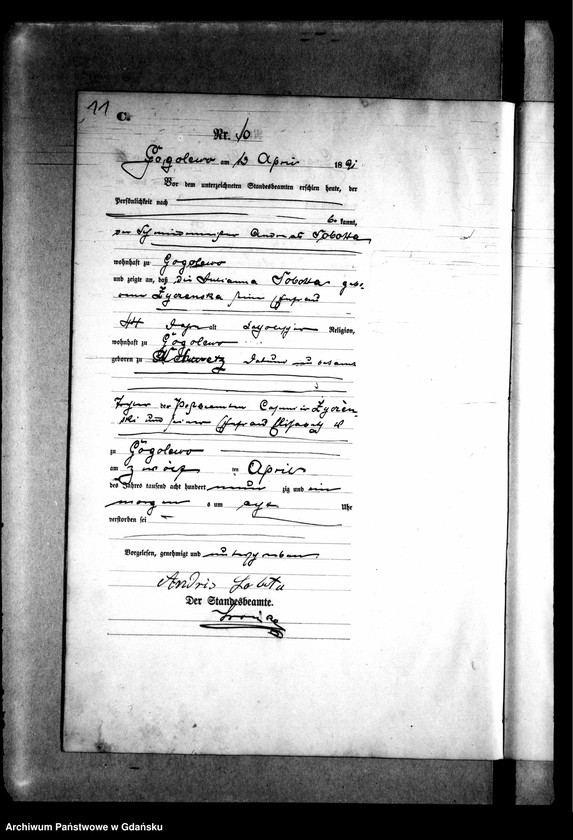 11
C.
Nr. 10
Gogolewo am 13 April 1891
Vor dem unterzeichneten Standesbeamten erschien heute, der
Persönlichkeit nach
be kannt,
der Andreas Sobotta
wohnhaft zu Gogolewo
und zeigte an, daß die Julianna Sobotta geb.
Ehefrau
44 Jahre alt katholischer Religion,
wohnhaft zu Gogolewo
geboren zu Datum unbekannt
Tochter des Casimir
und seiner Ehefrau Elisabeth
zu Gogolewo
am zwölf ten April
des Jahres tausend acht hundert neun zig und ein
morgen s um acht Uhr
verstorben sei
Vorgelesen, genehmigt und unterschrieben
Der Standesbeamte.
Archiwum Państwowe w Gdańsku